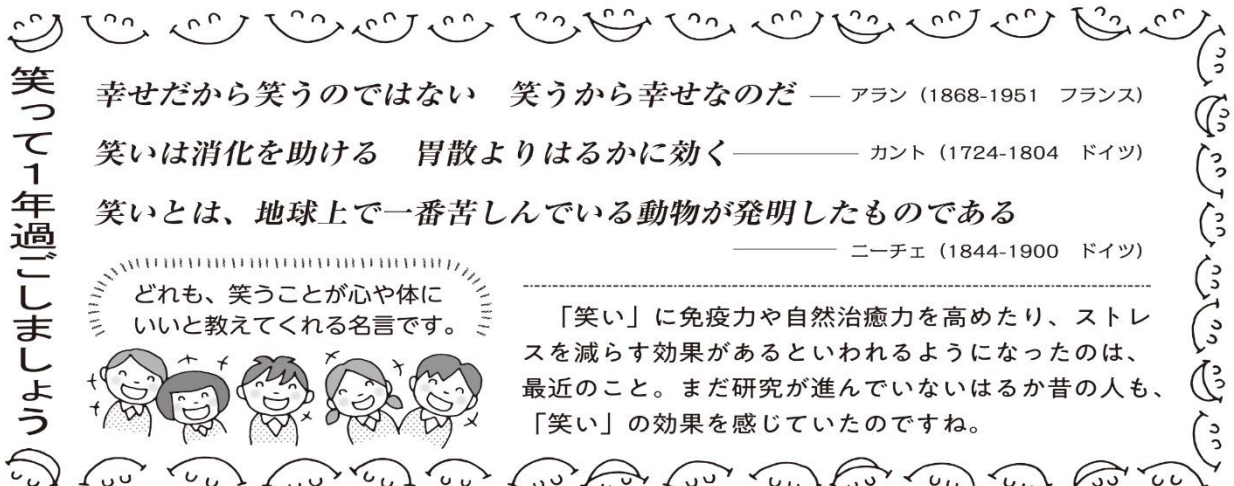 笑って1年過ごしましょう
幸せだから笑うのではない　笑うから幸せなのだ ― アラン（1868-1951　フランス）
笑いは消化を助ける　胃散よりはるかに効く――― カント（1724-1804　ドイツ）
笑いとは、地球上で一番苦しんでいる動物が発明したものである
――― ニーチェ（1844-1900　ドイツ）
どれも、笑うことが心や体に
いいと教えてくれる名言です。
「笑い」に免疫力や自然治癒力を高めたり、ストレ
スを減らす効果があるといわれるようになったのは、
最近のこと。まだ研究が進んでいないはるか昔の人も、
「笑い」の効果を感じていたのですね。